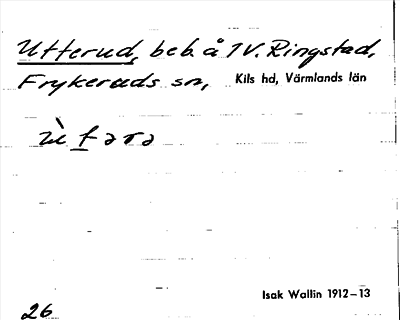 Utterud, beb. å 1 V. Ringstad,
Frykeruds sn, Kils hd, Värmlands län
Isak Wallin 1912–13
26